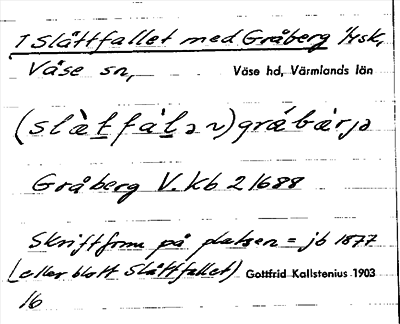 T Slåttfallet med Gråberg 1/4 sk,
Väse sn, Väse hd, Värmlands län
(slà̱tfàḻəv) grábàrjə
Gråberg V. kb 2 1688
Skriftform på platsen = jb 1877
(eller blott Slåttfallet) Gottfrid Kallstenius 1903
16